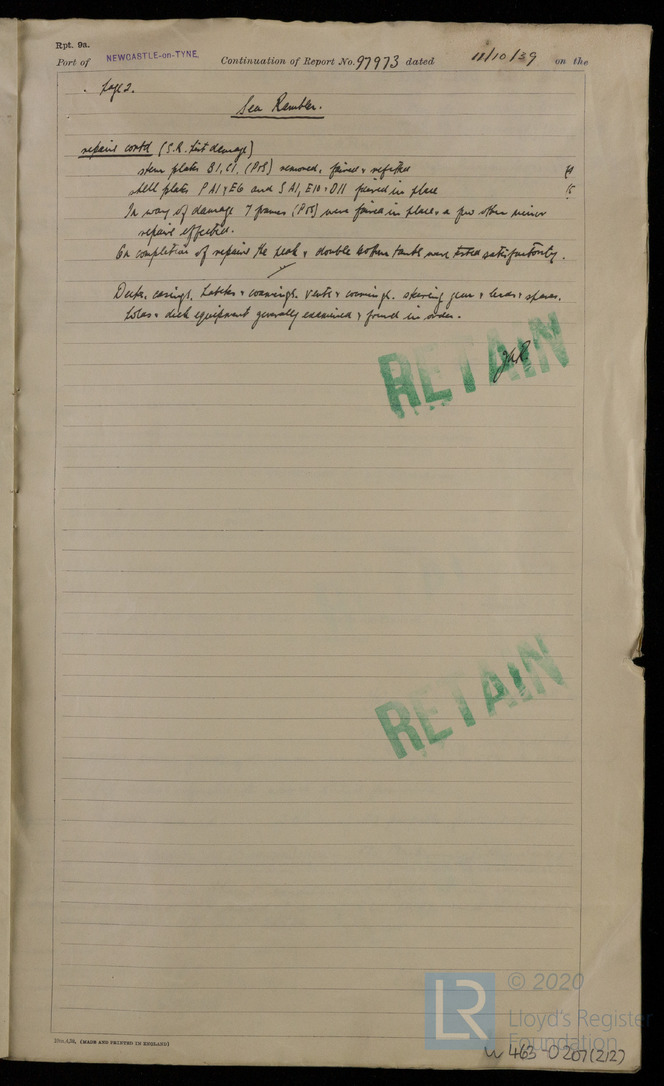 Rpt. 9a.
Port of NEWCASTLE-on-TYNE. Continuation of Report No. 97973 dated 11/10/39 on the
Page 2.
Sea Rambler.
repairs contd (S.R. list damage)
stem plates B1, C1, (P&S) removed, faired & refitted
shell plates P A1 & E6 and S A1, E10 & D11 faired in place
In way of damage 7 frames (P&S) were faired in place & a few other minor
repairs effected.
On completion of repairs the peak & double bottom tanks were tested satisfactorily.
Decks, casings, hatches & coamings, vents & coamings, steering gear & leads & spares,
& deck equipment generally examined & found in order.
RETAIN
RETAIN
(MADE AND PRINTED IN ENGLAND)
LR
© 2020
Lloyd's Register
Foundation
W463-0207(2/2)